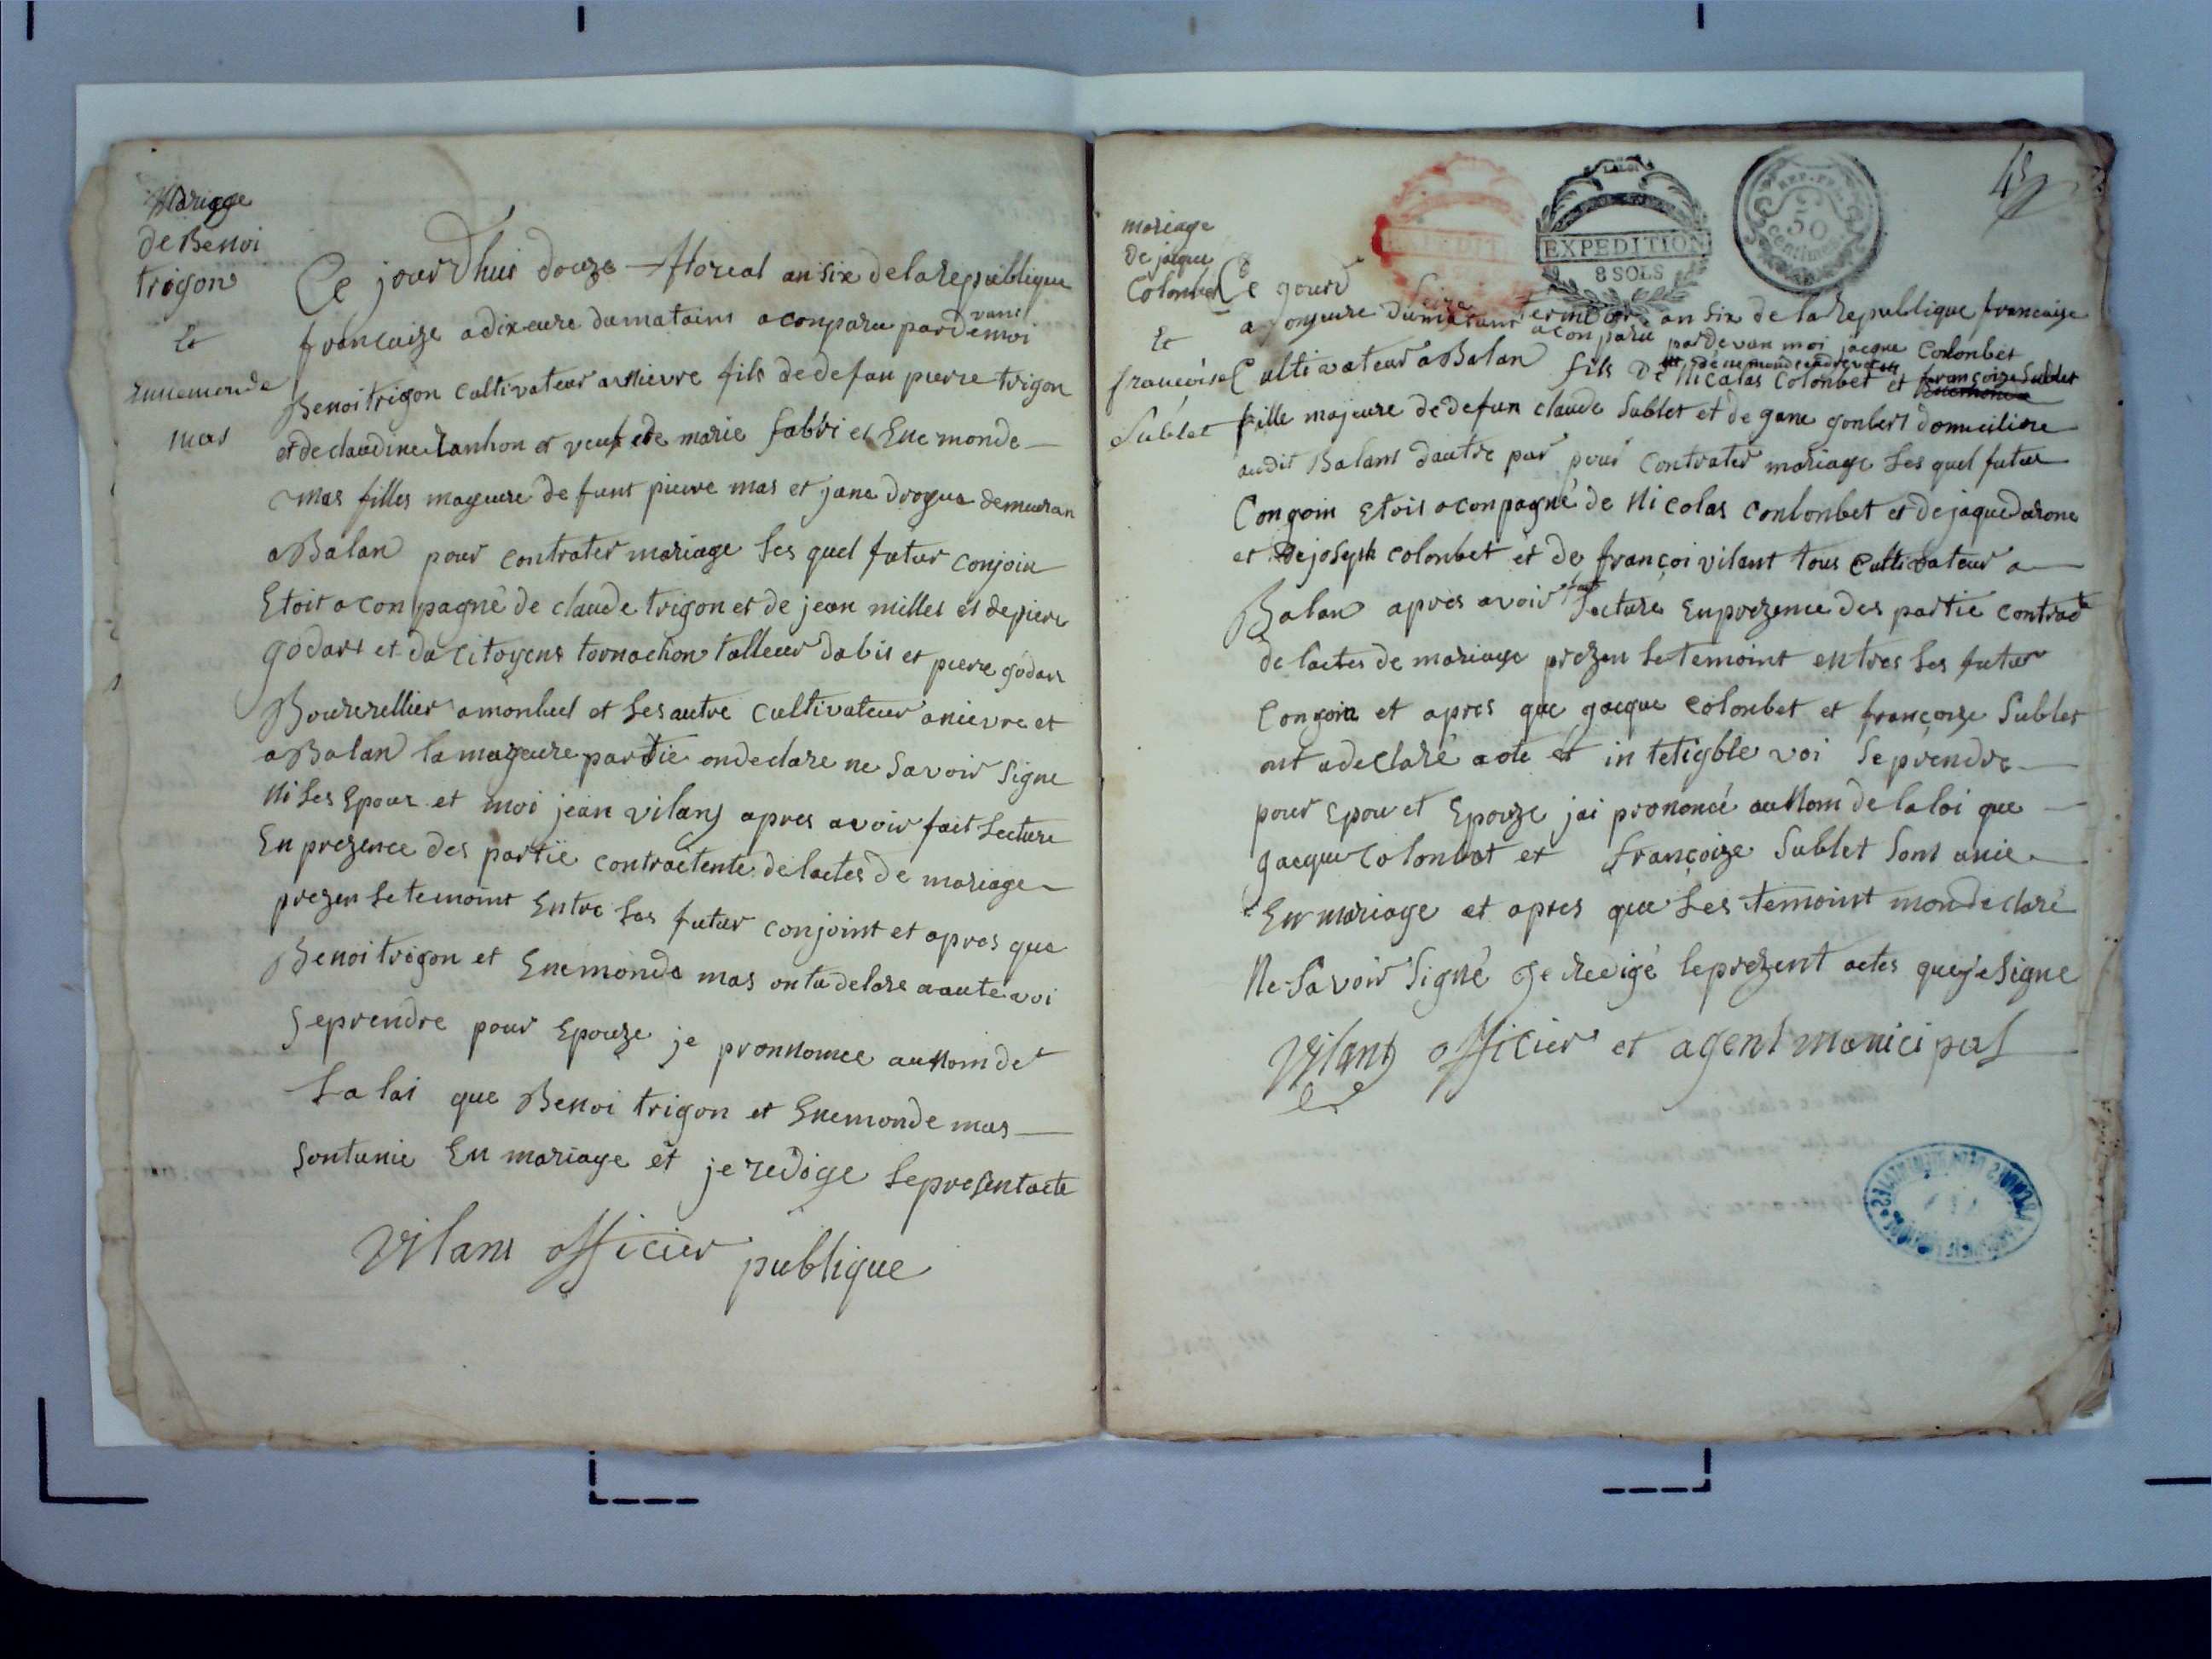 Mariage
de Benoi
trigon
Et
Ennemonde
mas
Ce jourdhui douze floreal an six de la republique
francaize a dixeure dumatains aconparu pardevant moi
Benoi trigon cultivateur a Nievre fils de defau pierre trigon
et de claudine Lanhon et veuf ede marie fabri et Enemonde
mas filles mageure de funt pierre mas et jane drogue demeuran
a Balan pour contrater mariage les quel futur conjoin
Etoit aconpagné de claude trigon et de jean milles et de piere
godart et du citoyens tornachon talleur dabis et pierre godar
Bourrellier a monluel et les autre cultivateur a nievre et
a Balan la mageure partie on declare ne savoir signe
ni les Epoux et moi jean vilans apres avoir fait lecture
En prezence des partie contractente de lactes de mariage
prezen le temoint Entre les futur conjoint et apres que
Benoi trigon et Enemonde mas on tu delare a aute voi
se prendre pour Epouze je pronnonce au nom de
La loi que Benoi trigon et Enemonde mas
sont unie En mariage et je redige le present acte
Vilans officier publique
mariage
De jaque
Colonbet
Et
francoise
Sublet
EXPEDITION
8 SOLS
REP. FRA.
50
centimes
Ce jourd Seize an six de la Republique francaize
a onjeure dumatins aconparu pardevan moi jacque Colonbet
Cultivateur a Balan fils De Nicolas Colonbet et françoize Sublet
fille majeure de defun claude Sublet et de gane gonbert domiciliere
audit Balans dautre par pour contrater mariage les quel futur
Congoin Etois aconpagné de Nicolas conlonbet et de jaque darone
et de joseph colonbet et de françoi vilant tous cultivateur a
Balan apres avoir fait lecture En prezence des partie contract
de lactes de mariage prezen le temoint entres les futur
Congoin et apres que gacque colonbet et françoize Sublet
ont a declaré a ote et intetigble voi se prendre
pour epou et Epouze jai prononcé au Nom de la loi que
gacque Colonbat et françoize Sublet sont unie
En mariage et apres que les temoint mon declaré
Ne Savoir Signé Je redigé le prezent actes que je Signe
Vilans officier et agent municipal